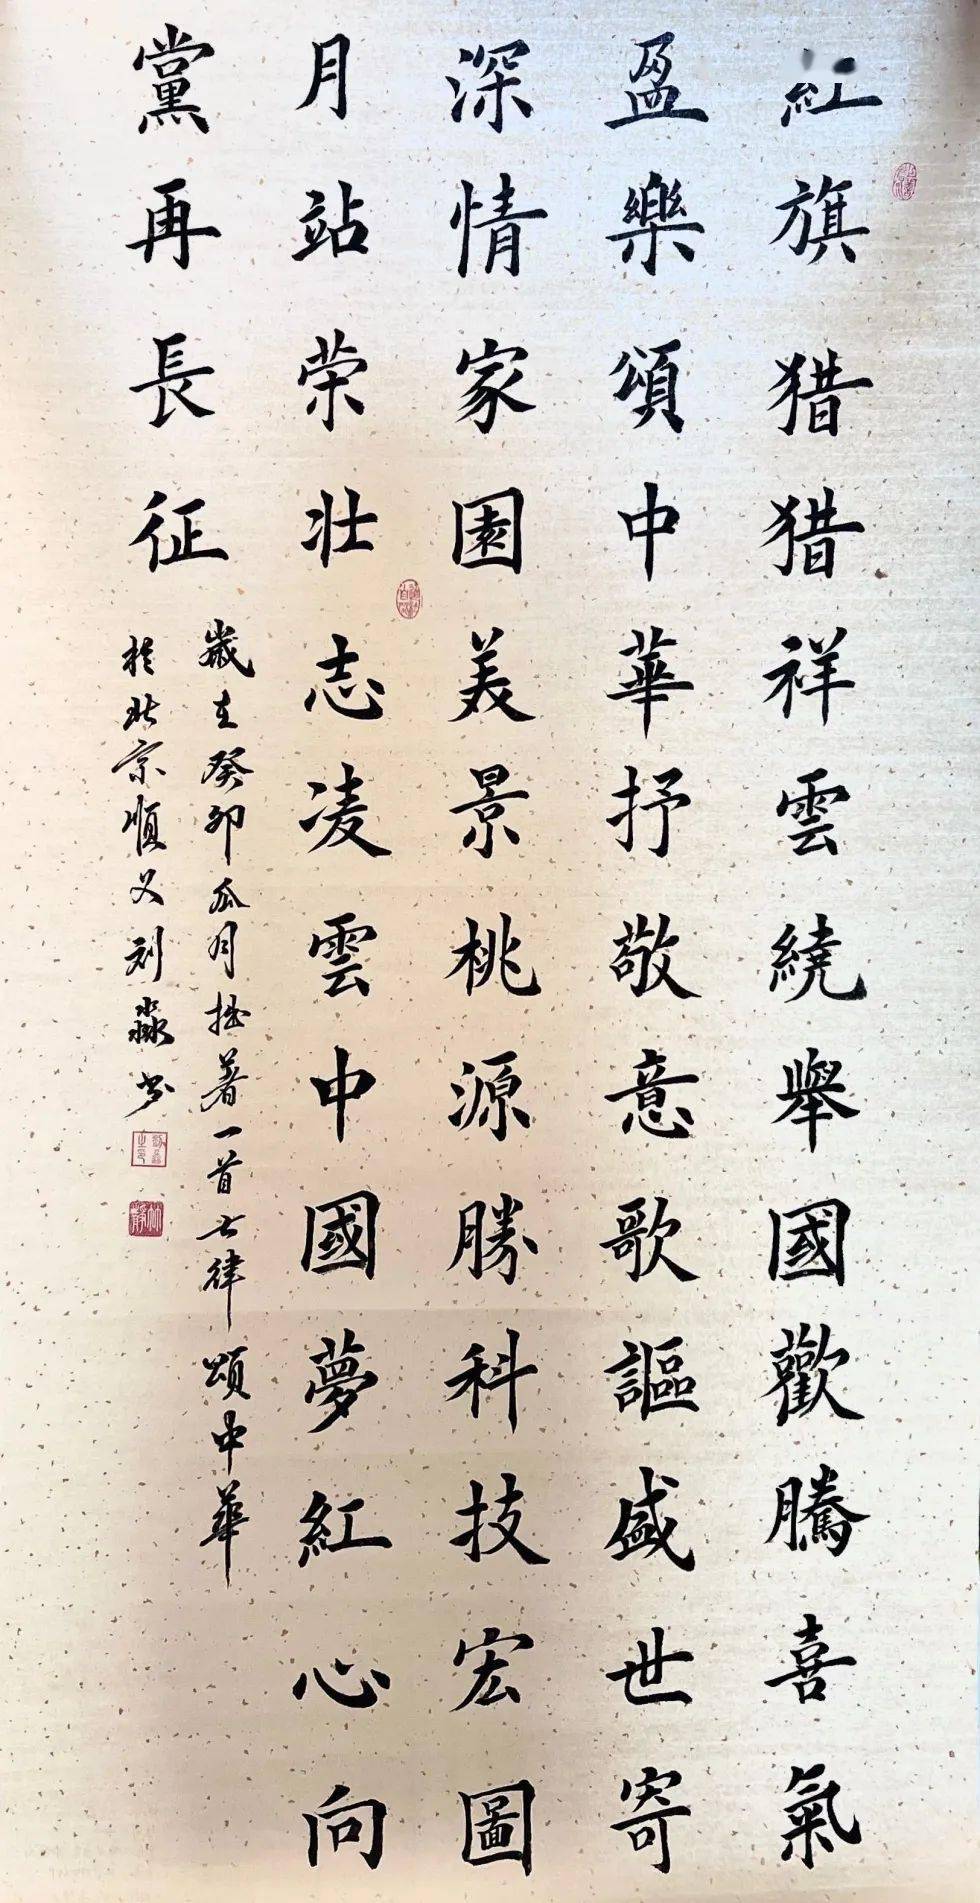 紅旗猎猎祥雲繞舉國歡騰喜氣
盈樂頌中華抒敬意歌謳盛世寄
深情家園美景桃源勝科技宏圖
月站荣壮志凌雲中國夢紅心向
黨再長征
歲在癸卯瓜月拙著一首七律頌中華
於北京順义刘淼书